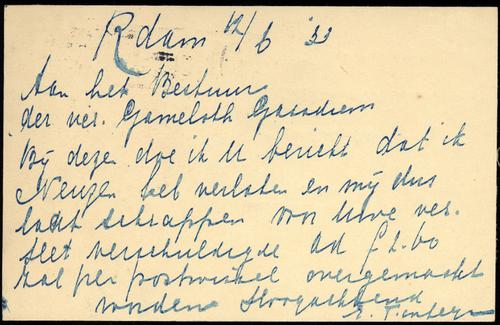 Rdam 12/6 '33
Aan het Bestuur
der ver. Gameloth Gasadiem
Bij dezen doe ik U bericht dat ik
Neuzen heb verlaten en mij dus
laat schrappen voor Uwe ver.
Het verschuldigde ad f 1.60
zal per postwissel overgemaakt
worden Hoogachtend